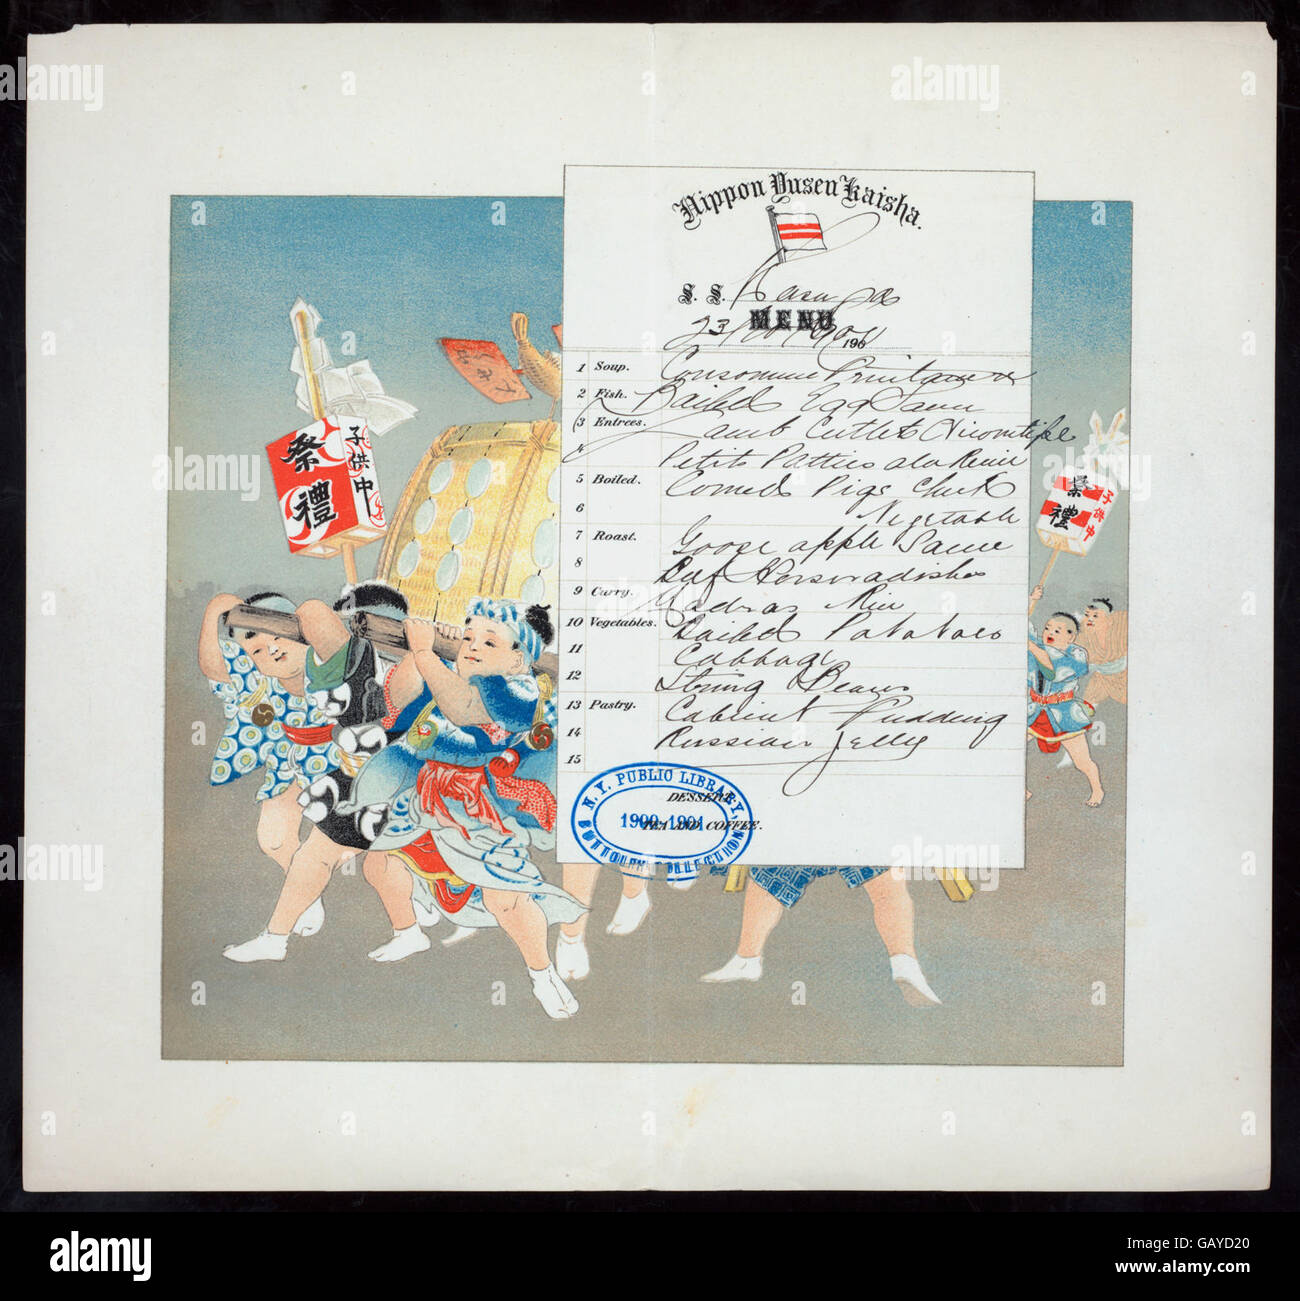 Nippon Yusen Kaisha.
S. S. Kasuga
MENU
23/ 190
1 Soup. Consomme Printaniere
2 Fish. Boiled Egg Sauce
3 Entrees. Lamb Cutlets Vicomtesse
4 Petits Patties ala Reine
5 Boiled. Corned Pigs Cheek
6 Vegetable
7 Roast. Goose apple Sauce
8 Beef Horseradishs
9 Curry. Madras Rice
10 Vegetables. Boiled Potatoes
11 Cabbage
12 String Beans
13 Pastry. Cabinet Pudding
14 Russian Jelly
15
DESSERT
TEA AND COFFEE.
N.Y. PUBLIC LIBRARY,
1900-1901
BUTTOLPH COLLECTION
子供中
祭禮
子供中
祭禮
alamy
a
alamy
Image ID: GAYD20
www.alamy.com